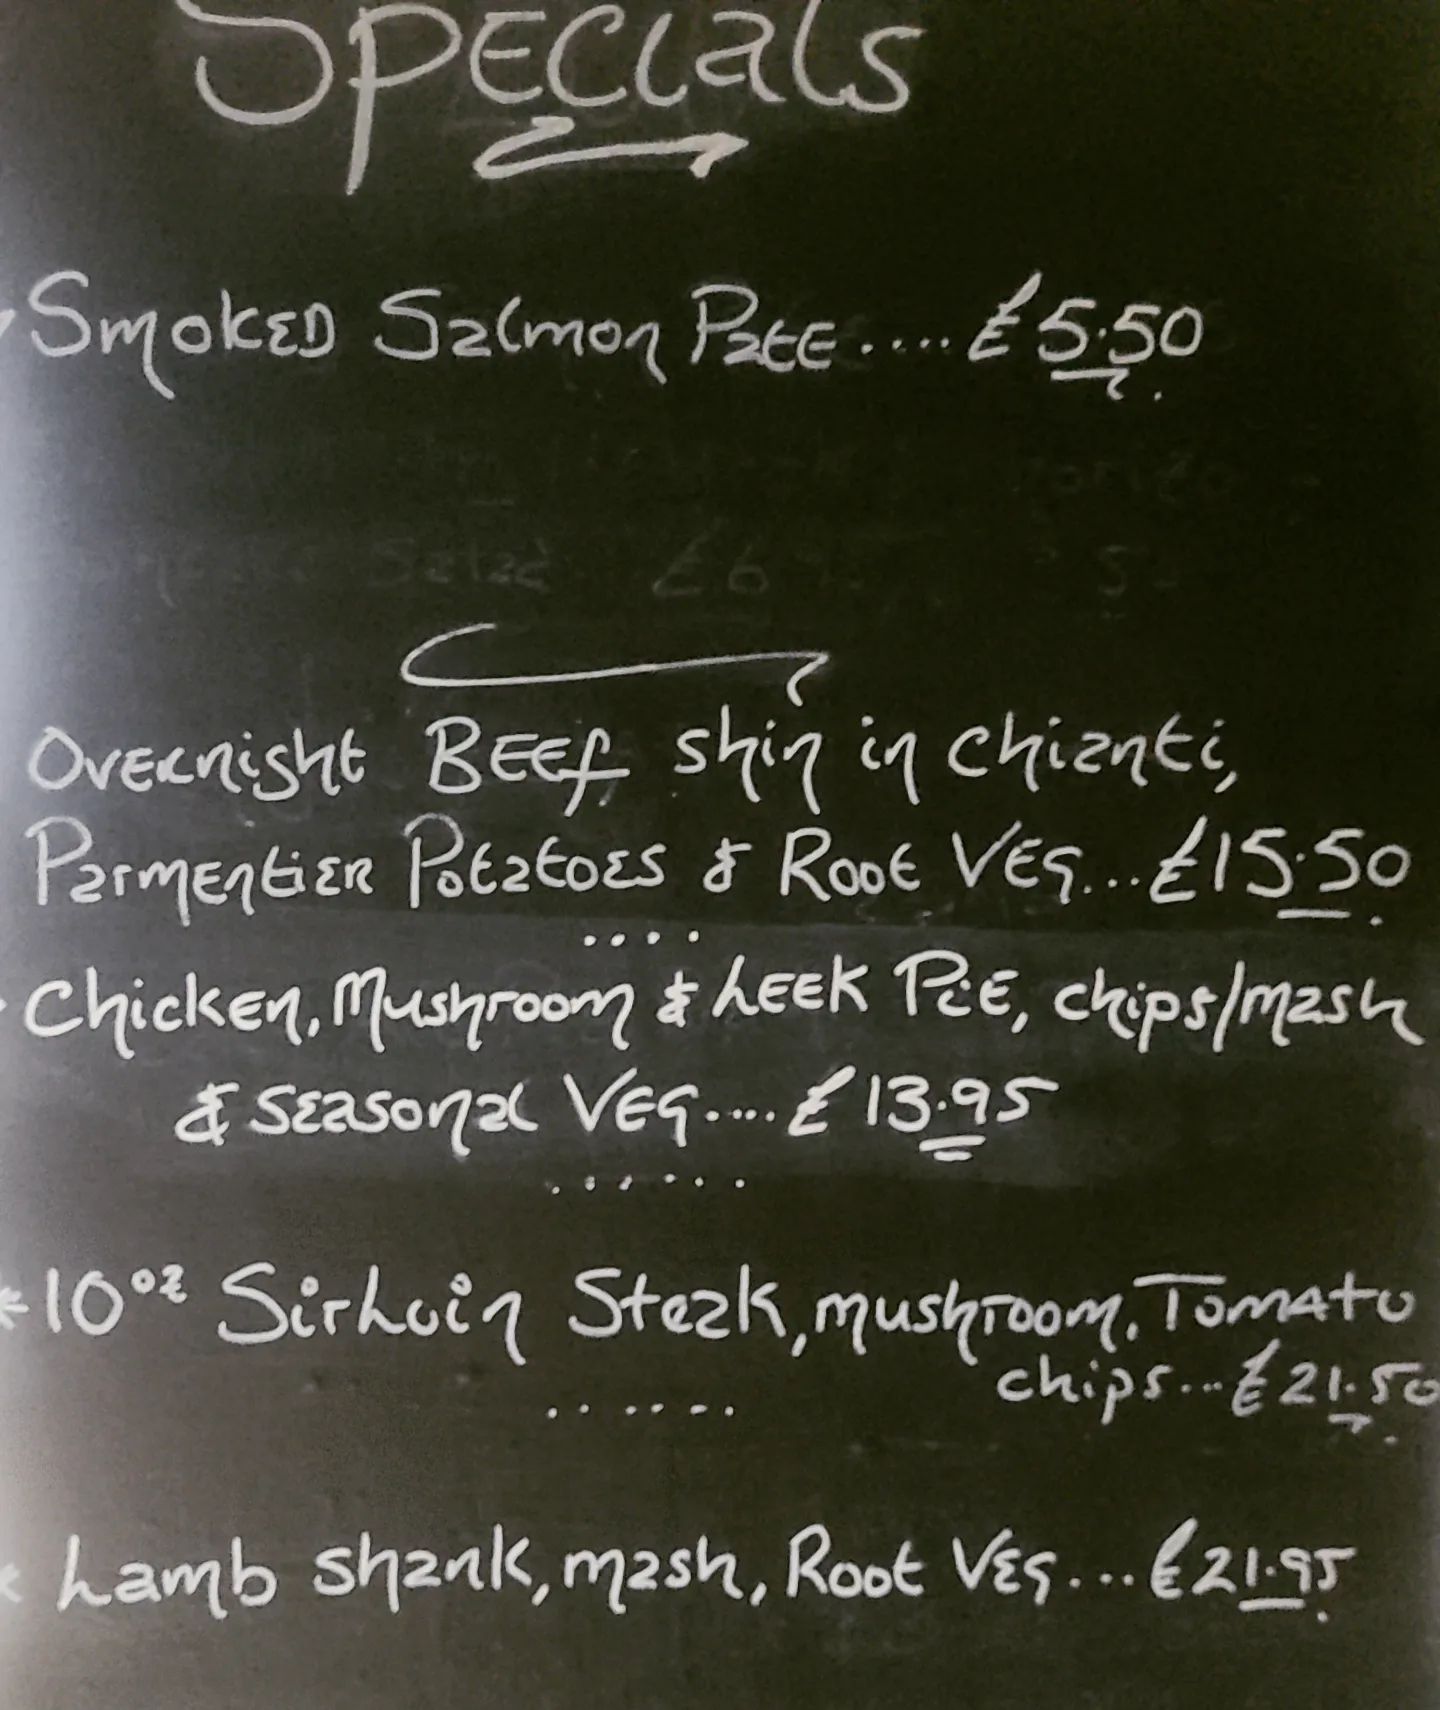 Specials
Smoked Salmon Pate .... £5.50
Salad £6
Overnight Beef shin in chianti,
Parmentier Potatoes & Root Veg... £15.50
....
Chicken, Mushroom & Leek Pie, chips/mash
& Seasonal Veg.... £13.95
......
*10oz Sirloin Steak, mushroom, Tomato
chips... £21.50
......
* Lamb shank, mash, Root Veg... £21.95